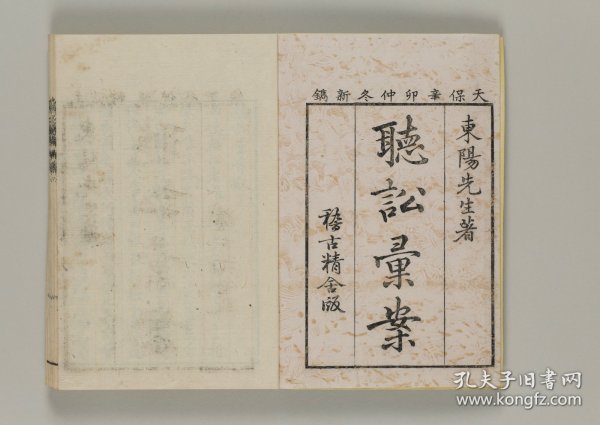 天保辛卯仲冬新鐫
東陽先生著
聽訟彙案
稽古精舍版
孔夫子旧书网
www.kongfz.com